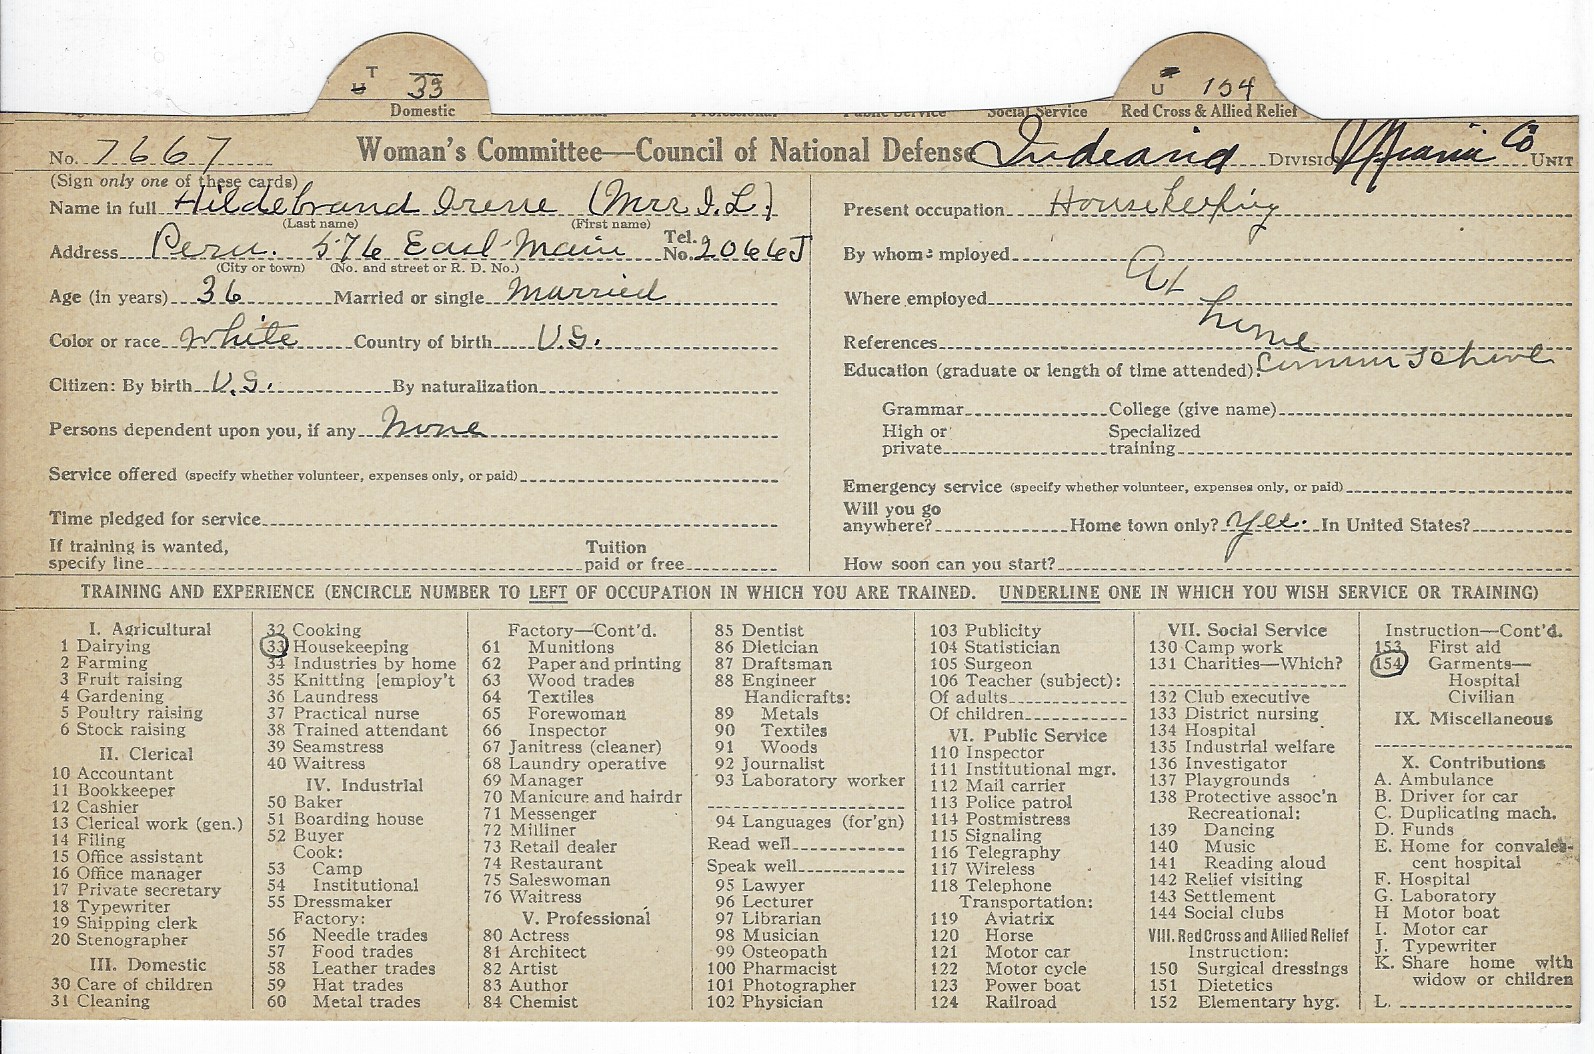 T
U 33
Domestic
U 154
Social Service Red Cross & Allied Relief
No. 7667 Woman's Committee—Council of National Defense Indiana DIVISION Miami Co UNIT
(Sign only one of these cards)
Name in full Hildebrand Irene (Mrs I.L.)
(Last name) (First name)
Address Peru. 576 East Main Tel. No. 2066J
(City or town) (No. and street or R. D. No.)
Age (in years) 36 Married or single Married
Color or race white Country of birth U.S.
Citizen: By birth U.S. By naturalization
Persons dependent upon you, if any None
Service offered (specify whether volunteer, expenses only, or paid)
Time pledged for service
If training is wanted, specify line Tuition paid or free
Present occupation Housekeeping
By whom employed
At
Where employed
home
References
Education (graduate or length of time attended): Common School
Grammar College (give name)
High or private Specialized training
Emergency service (specify whether volunteer, expenses only, or paid)
Will you go anywhere? Home town only? Yes. In United States?
How soon can you start?
TRAINING AND EXPERIENCE (ENCIRCLE NUMBER TO LEFT OF OCCUPATION IN WHICH YOU ARE TRAINED. UNDERLINE ONE IN WHICH YOU WISH SERVICE OR TRAINING)
I. Agricultural
1 Dairying
2 Farming
3 Fruit raising
4 Gardening
5 Poultry raising
6 Stock raising
II. Clerical
10 Accountant
11 Bookkeeper
12 Cashier
13 Clerical work (gen.)
14 Filing
15 Office assistant
16 Office manager
17 Private secretary
18 Typewriter
19 Shipping clerk
20 Stenographer
III. Domestic
30 Care of children
31 Cleaning
32 Cooking
33 Housekeeping
34 Industries by home
35 Knitting [employ't
36 Laundress
37 Practical nurse
38 Trained attendant
39 Seamstress
40 Waitress
IV. Industrial
50 Baker
51 Boarding house
52 Buyer
Cook:
53 Camp
54 Institutional
55 Dressmaker
Factory:
56 Needle trades
57 Food trades
58 Leather trades
59 Hat trades
60 Metal trades
Factory—Cont'd.
61 Munitions
62 Paper and printing
63 Wood trades
64 Textiles
65 Forewoman
66 Inspector
67 Janitress (cleaner)
68 Laundry operative
69 Manager
70 Manicure and hairdr
71 Messenger
72 Milliner
73 Retail dealer
74 Restaurant
75 Saleswoman
76 Waitress
V. Professional
80 Actress
81 Architect
82 Artist
83 Author
84 Chemist
85 Dentist
86 Dietician
87 Draftsman
88 Engineer
Handicrafts:
89 Metals
90 Textiles
91 Woods
92 Journalist
93 Laboratory worker
94 Languages (for'gn)
Read well
Speak well
95 Lawyer
96 Lecturer
97 Librarian
98 Musician
99 Osteopath
100 Pharmacist
101 Photographer
102 Physician
103 Publicity
104 Statistician
105 Surgeon
106 Teacher (subject):
Of adults
Of children
VI. Public Service
110 Inspector
111 Institutional mgr.
112 Mail carrier
113 Police patrol
114 Postmistress
115 Signaling
116 Telegraphy
117 Wireless
118 Telephone
Transportation:
119 Aviatrix
120 Horse
121 Motor car
122 Motor cycle
123 Power boat
124 Railroad
VII. Social Service
130 Camp work
131 Charities—Which?
132 Club executive
133 District nursing
134 Hospital
135 Industrial welfare
136 Investigator
137 Playgrounds
138 Protective assoc'n
Recreational:
139 Dancing
140 Music
141 Reading aloud
142 Relief visiting
143 Settlement
144 Social clubs
VIII. Red Cross and Allied Relief
Instruction:
150 Surgical dressings
151 Dietetics
152 Elementary hyg.
Instruction—Cont'd.
153 First aid
154 Garments—
Hospital
Civilian
IX. Miscellaneous
X. Contributions
A. Ambulance
B. Driver for car
C. Duplicating mach.
D. Funds
E. Home for convales-
cent hospital
F. Hospital
G. Laboratory
H Motor boat
I. Motor car
J. Typewriter
K. Share home with
widow or children
L.